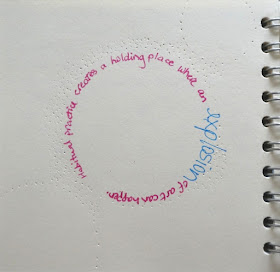 Habitual practice creates a holding place where an explosion of art can happen.